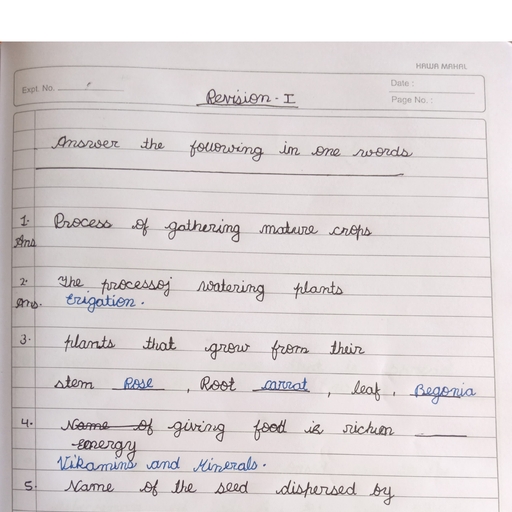 HAWA MAHAL
Expt. No.
Date :
Page No. :
Revision - I
Answer the following in one words
1. Process of gathering mature crops
Ans
2. The processoj watering plants
Ans. Erigation.
3. plants that grow from their
stem Rose, Root carrat, leaf, Begonia
4. Name of giving food is richen
energy
Vikamins and Minerals.
5. Name of the seed dispersed by